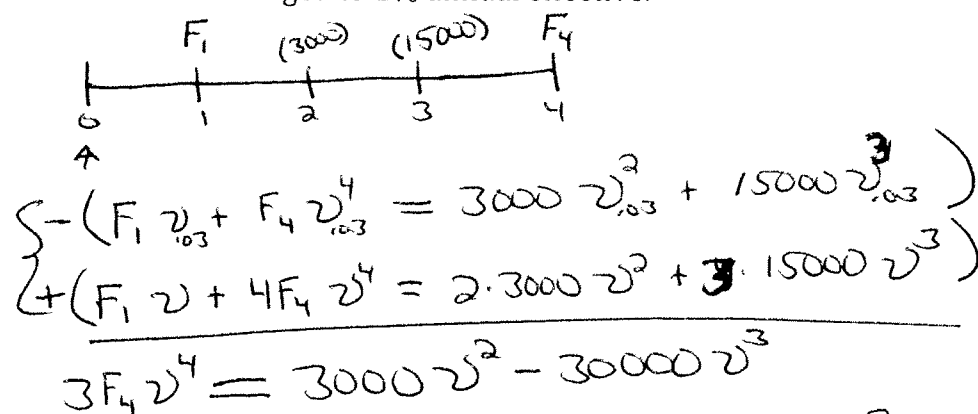 F₁ (3000) (15000) F₄
0 1 2 3 4
{ -(F₁ v.₀₃ + F₄ v⁴.₀₃ = 3000 v².₀₃ + 15000 v³.₀₃)
+(F₁ v + 4F₄ v⁴ = 2·3000 v² + 3·15000 v³)
3F₄ v⁴ = 3000 v² - 30000 v³